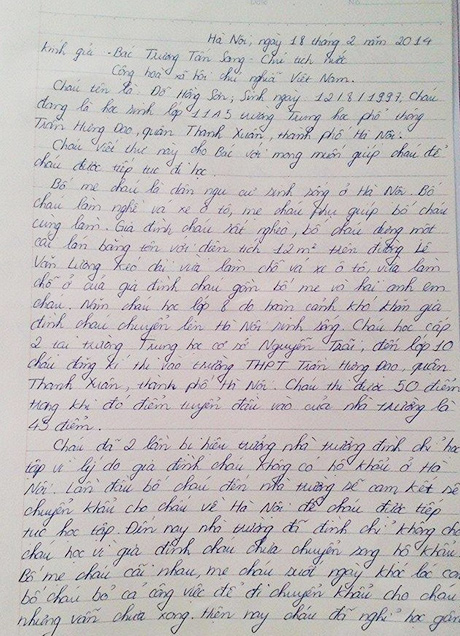 Hà Nội, ngày 18 tháng 2 năm 2014
Kính gửi - Bác Trương Tấn Sang - Chủ tịch nước
Cộng hoà xã hội chủ nghĩa Việt Nam.
Cháu tên là Đỗ Hồng Sơn, Sinh ngày 12/8/1997, Cháu
đang là học sinh lớp 11A5 trường trung học phổ thông
Trần Hưng Đạo, quận Thanh Xuân, thành phố Hà Nội.
Cháu Viết thư này cho Bác với mong muốn giúp cháu để
cháu được tiếp tục đi học.
Bố mẹ cháu là dân ngụ cư sinh sống ở Hà Nội. Bố
cháu làm nghề vá xe ô tô, mẹ cháu phụ giúp bố cháu
cùng làm. Gia đình cháu rất nghèo, bố cháu dựng một
cái lán bằng tôn với diện tích 12m² trên đường Lê
Văn Lương kéo dài vừa làm chỗ vá xe ô tô, vừa làm
chỗ ở của gia đình cháu gồm bố mẹ và hai anh em
cháu. Năm cháu học lớp 8 do hoàn cảnh khó khăn gia
đình cháu chuyển lên Hà Nội sinh sống. Cháu học cấp
2 tại trường Trung học cơ sở Nguyễn Trãi, đến lớp 10
cháu đăng kí thi vào trường THPT Trần Hưng Đạo, quận
Thanh Xuân, thành phố Hà Nội. Cháu thi được 50 điểm
trong khi đó điểm tuyển đầu vào của nhà trường là
45 điểm.
Cháu đã 2 lần bị hiệu trưởng nhà trường đình chỉ học
tập vì lý do gia đình cháu không có hộ khẩu ở Hà
Nội. Lần đầu bố cháu đến nhà trường sẽ cam kết sẽ
chuyển khẩu cho cháu về Hà Nội để cháu được tiếp
tục học tập. Đến nay nhà trường đã đình chỉ không cho
cháu học vì gia đình cháu chưa chuyển song hộ khẩu.
Bố mẹ cháu cãi nhau, mẹ cháu suốt ngày khóc lóc còn
bố cháu bỏ cả công việc để đi chuyển khẩu cho cháu
nhưng vẫn chưa xong. Hiện nay cháu đã nghỉ học gần